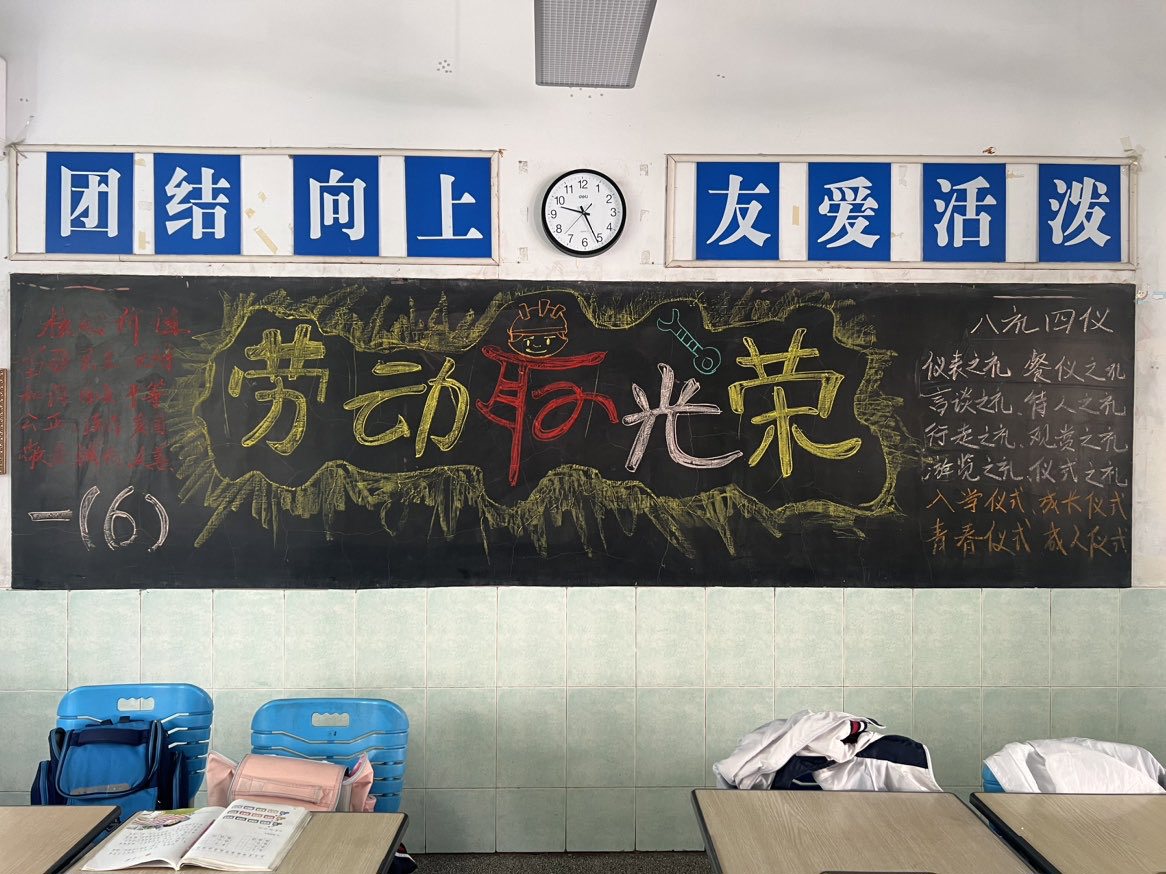 团结 向上
12 1 2 3 4 5 6 7 8 9 10 11
deli
友爱活泼
核心价值
富强 民主 文明
和谐 自由 平等
公正 法治 爱国
敬业 诚信 友善
一(6)
劳动最光荣
八礼四仪
仪表之礼、餐仪之礼
言谈之礼、待人之礼
行走之礼、观赏之礼
游览之礼、仪式之礼
入学仪式、成长仪式
青春仪式 成人仪式